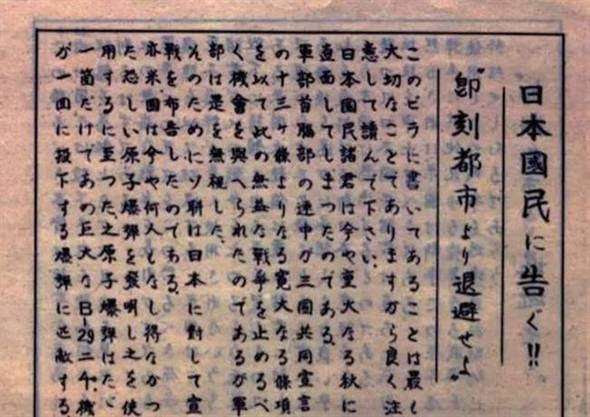 日本國民に告ぐ!!
"即刻都市より退避せよ"
このビラに書いてあることは最も
大切なことでありますから良く注
意して讀んで下さい。
日本國民諸君は今や重大なる秋に
直面してしまつたのである。
軍部首脳部の連中が三國共同宣言
の十三ヶ條よりなる寛大なる條項
を以て此の無益な戦争を止めるべ
く機會を與へられたのであるが軍
部は是を無視した。
そのためにソ聯は日本に對して宣
戦を布告したのである。
亦米國は今や何人もなし得なかつ
た恐しい原子爆弾を發明し之を使
用するに至つた。之原子爆弾はたゞ
一箇だけであの巨大なB-29二千機
が一回に投下する爆弾に匹敵する